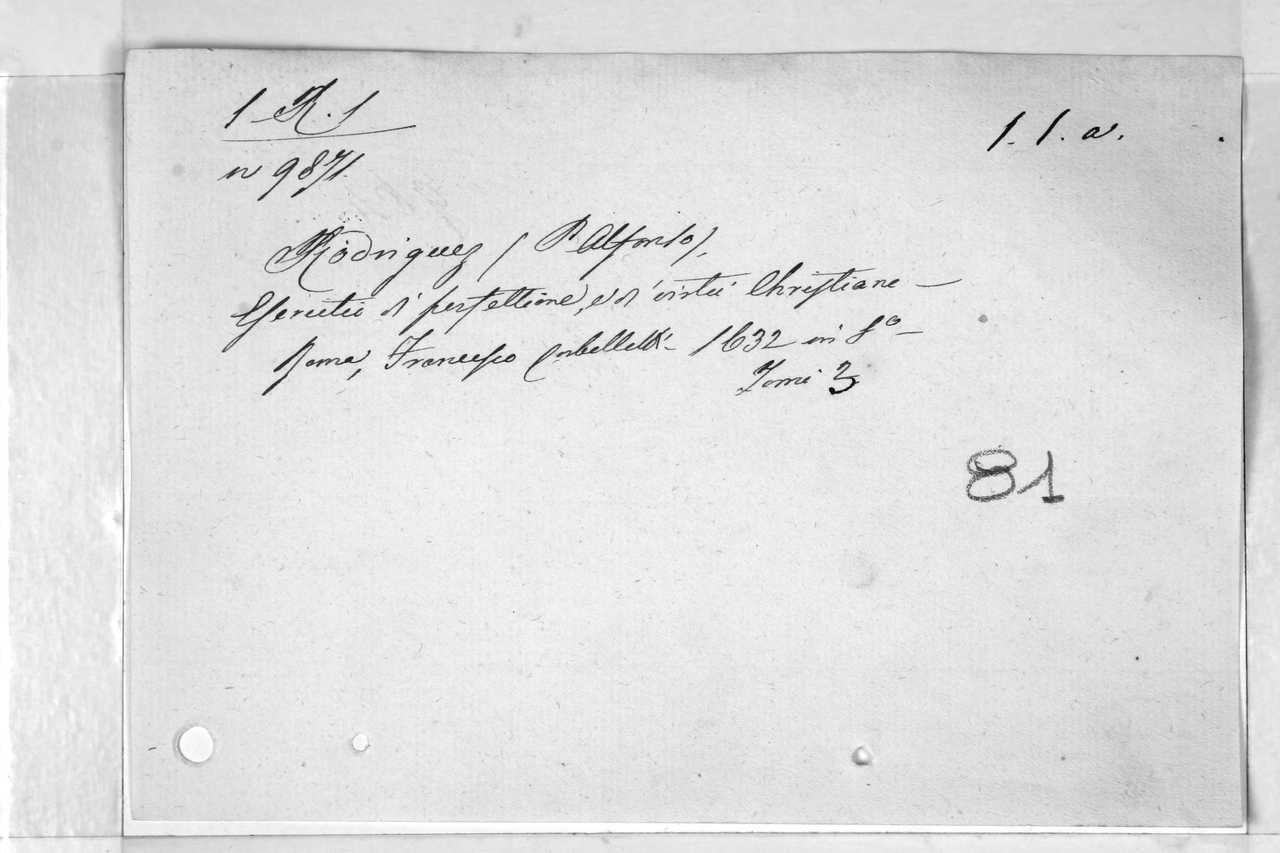 1 R. 1
1. 1. a.
n 9871
Rodriguez (P. Alfonso).
Esercitio di perfettione, e di virtù Christiane —
Roma, Francesco Corbelletti - 1632 in 8º —
Tomi 3
81